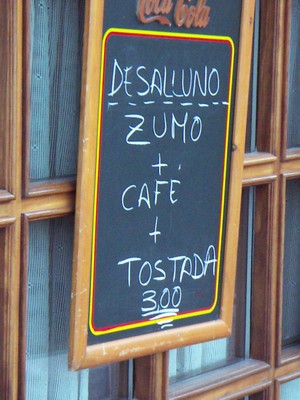 Coca Cola
DESALLUNO
ZUMO
+
CAFÉ
+
TOSTADA
3,00